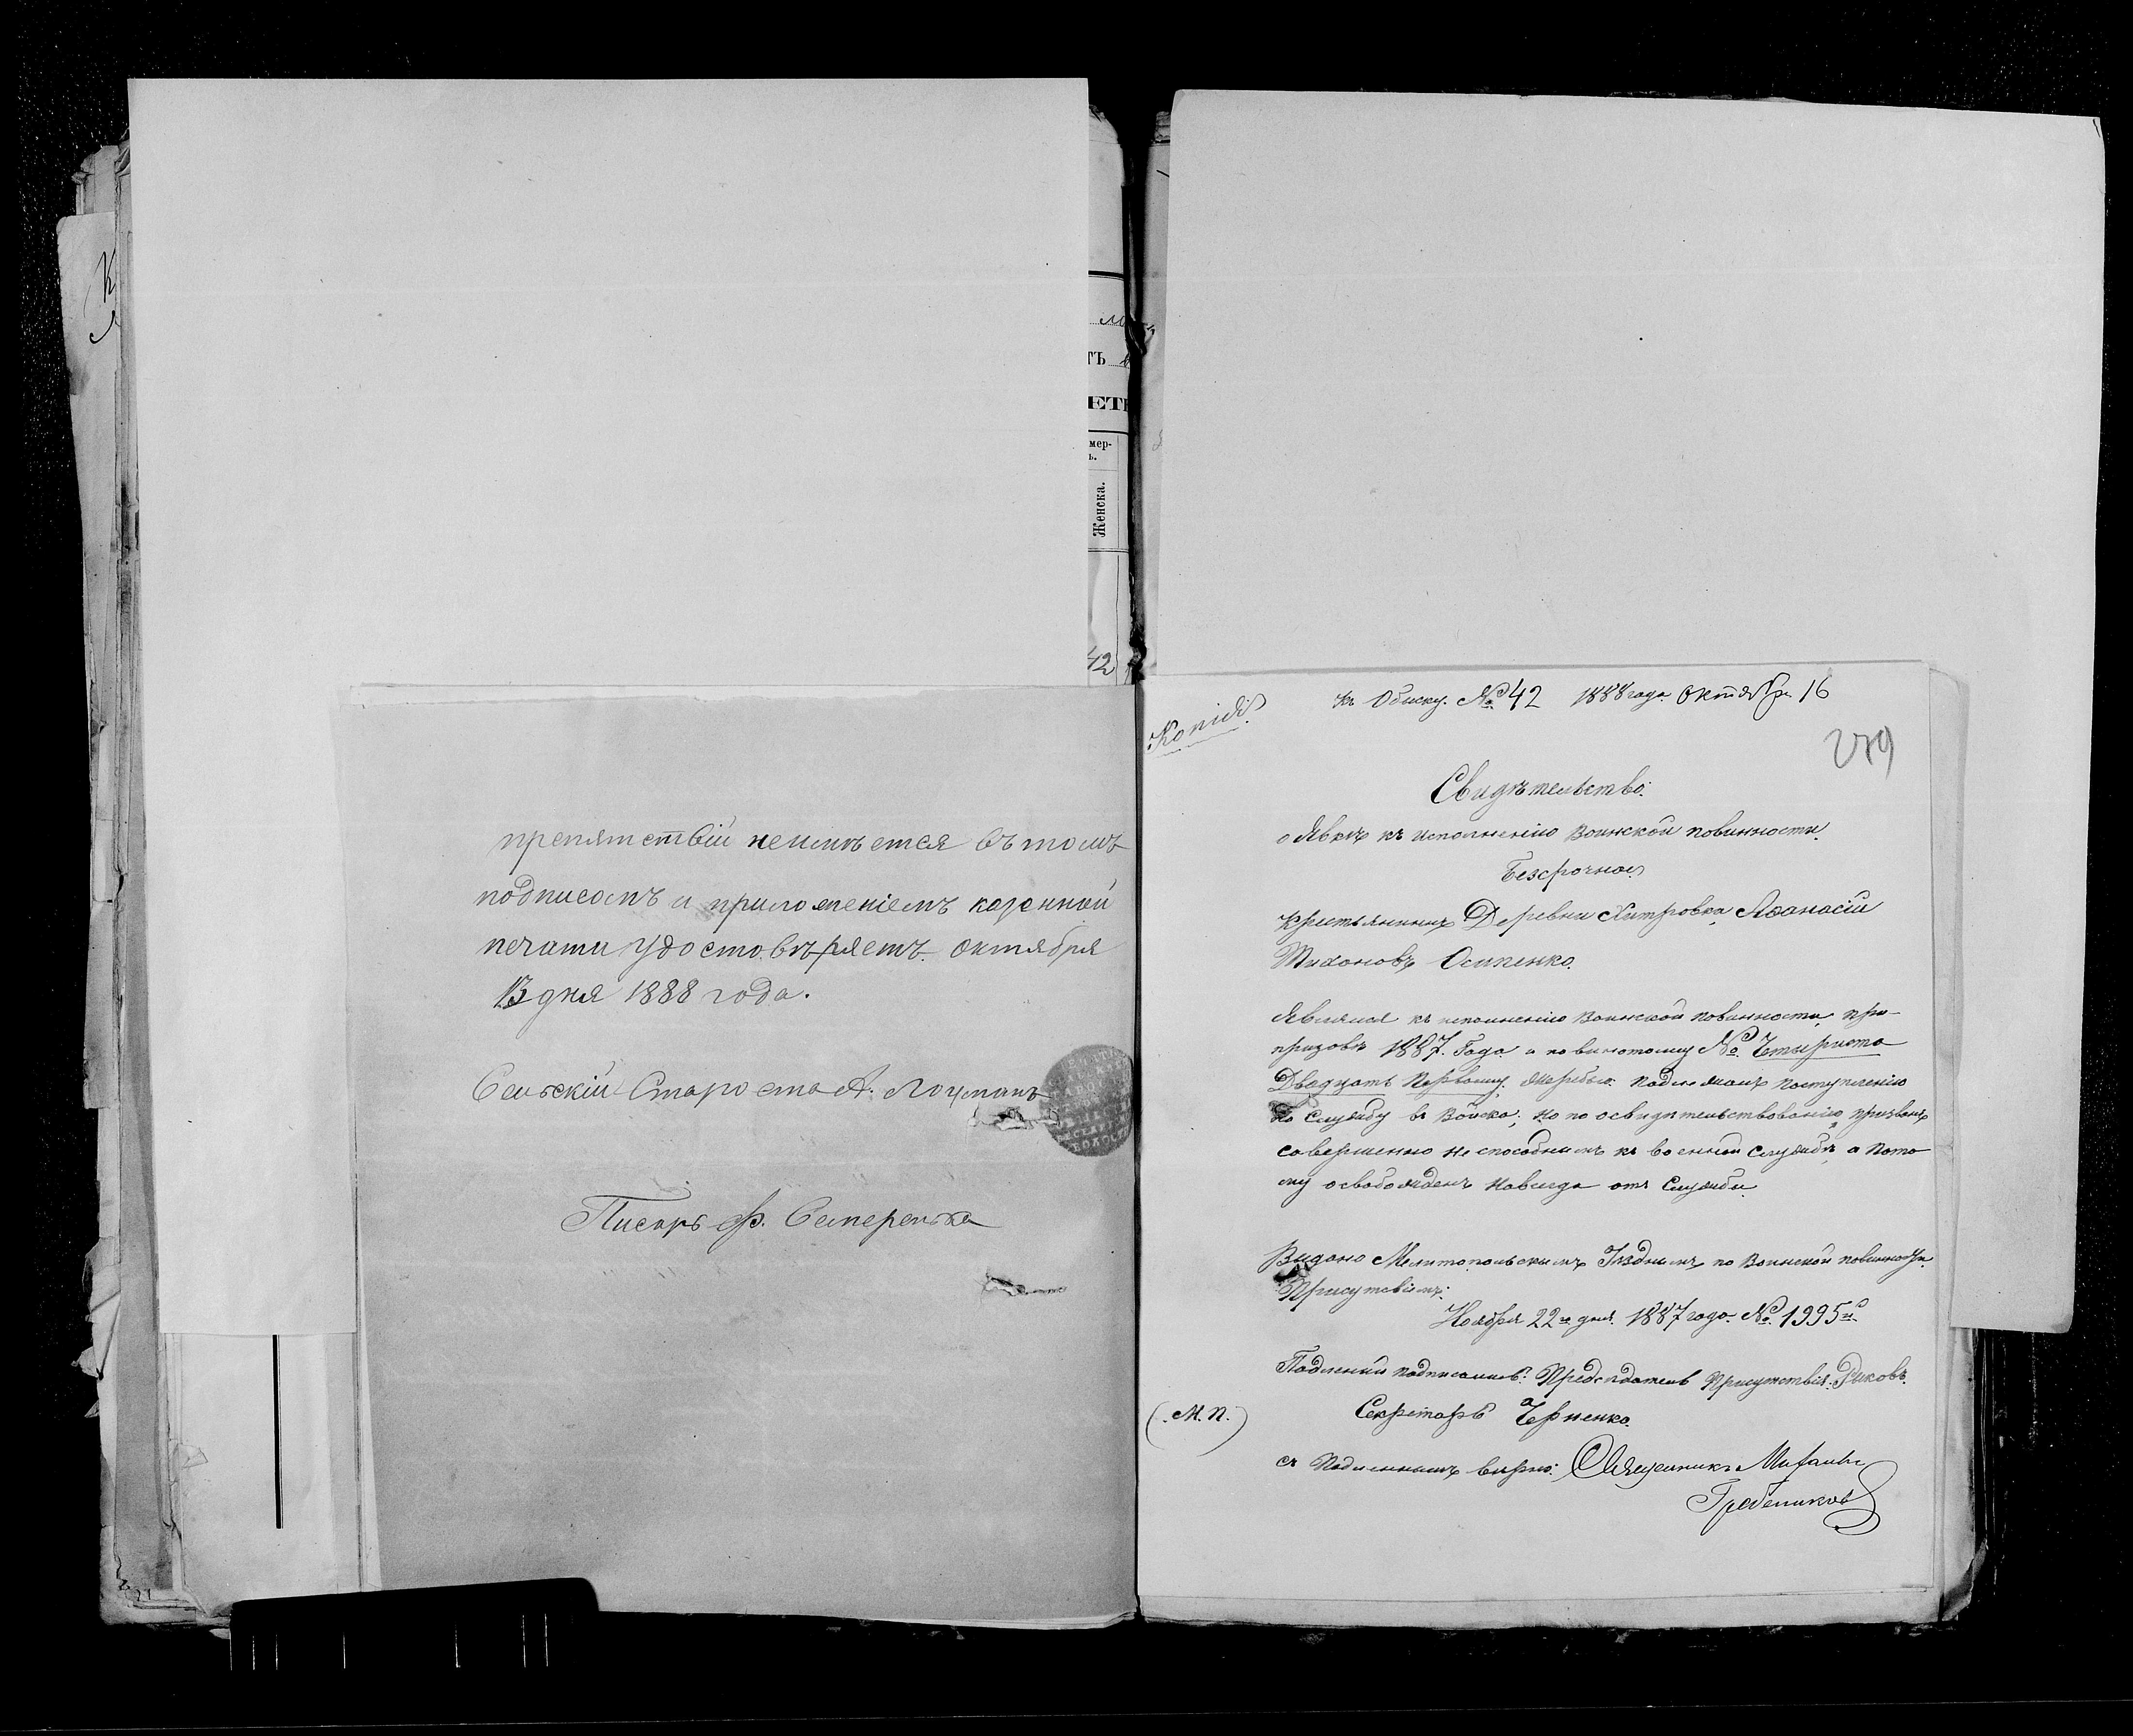 препятствій неимѣется въ томъ
подписомъ и приложеніемъ казенной
печати удостовѣряетъ. октября
13 дня 1888 года.
Сельскій Староста А. Лоцманъ
Писарь Ф.
42
ТЪ
мер-
Женска.
Копія
къ Обыску. № 42 1888 года. Октября 16
279
Свидѣтельство.
о Явкѣ къ исполненію воинской повинности.
Безсрочное
крестьянинъ Деревни Хитровка, Афанасій
Тихоновъ Осипенко.
Являлся къ исполненію Воинской повинности, при-
призовѣ 1887. Года и по винотому №. Четыриста
Двадцать Первому. жеребью. подлежалъ поступленію
на Службу въ Войска, но по освидѣтельствованію, призванъ
совершенно неспособнымъ къ военной службѣ, а пото
му освобожденъ навсегда отъ Службы.
Видано Мелитопольскимъ Уѣзднымъ по Воинской повинности
Присутствіемъ.
Ноября 22го дня. 1887 года. №. 1995й.
Подленый подписали: Предсѣдатель Присутствія. Рыковъ.
Секретарь Черненко.
(М. П.)
съ Подленнымъ вѣрно: Священникъ Михаилъ
Гребениковъ